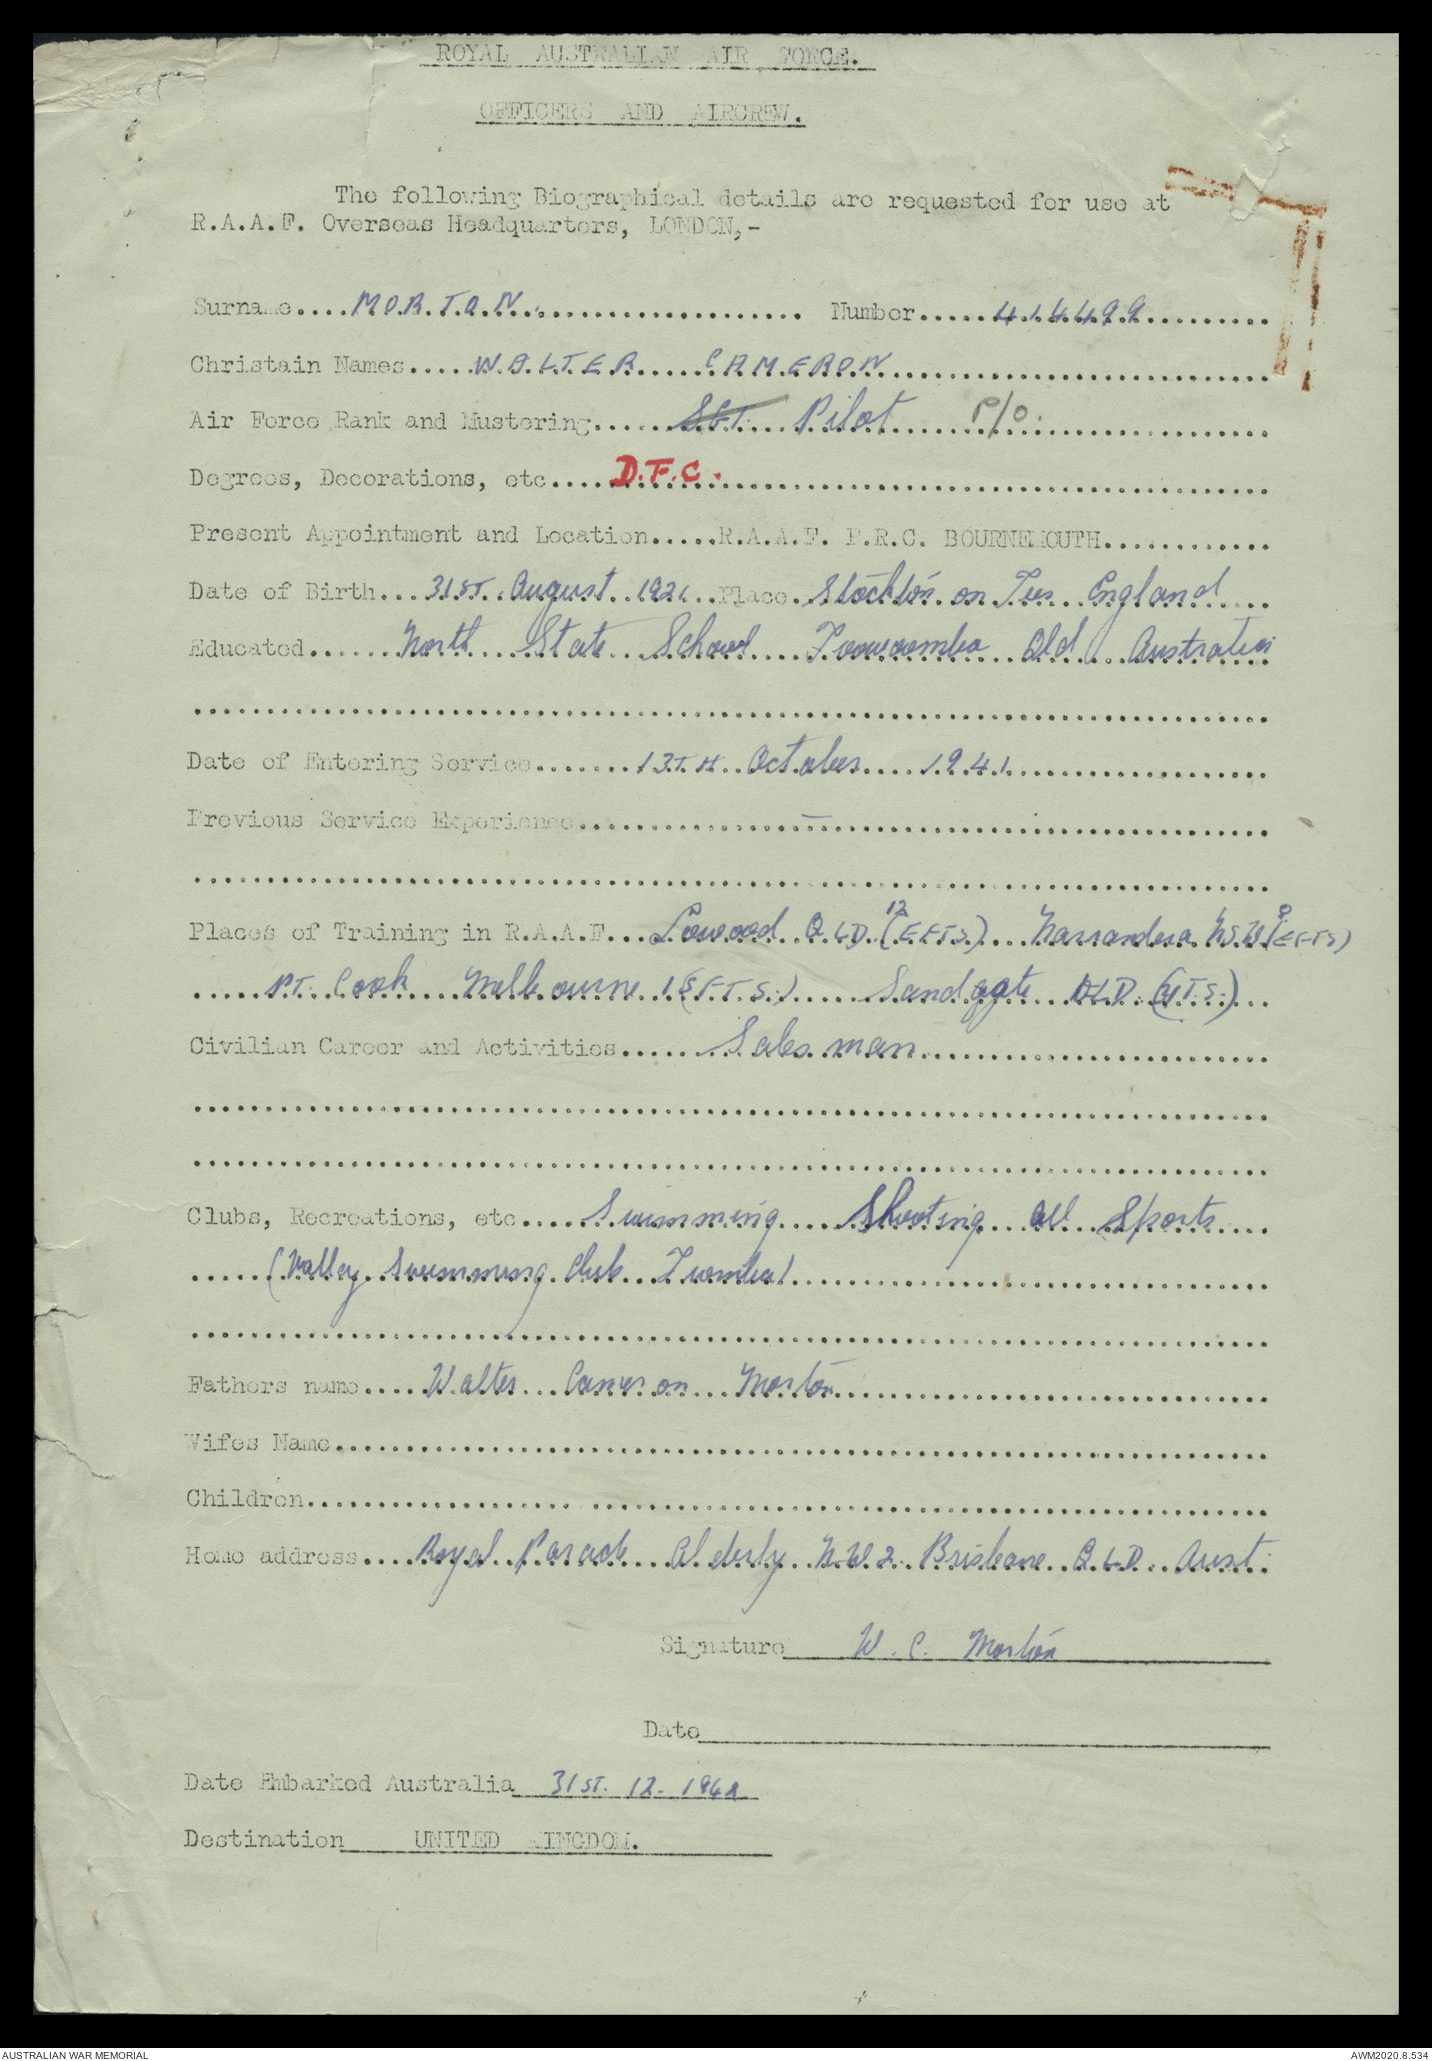 ROYAL AUSTRALIAN AIR FORCE.
OFFICERS AND AIRCREW.
The following Biographical details are requested for use at
R.A.A.F. Overseas Headquarters, LONDON,-
Surname....MORTON.................... Number.....414499.........
Christain Names.....WALTER.....CAMERON...........................
Air Force Rank and Mustering......SGT....Pilot......P/O..................
Degrees, Decorations, etc....D.F.C........................................
Present Appointment and Location.....R.A.A.F. P.R.C. BOURNEMOUTH............
Date of Birth...31ST. August 1921..Place.Stockton on Tees England....
Educated......North State School Toowoomba Qld Australia
..........................................................................
Date of Entering Service.......13TH October 1941..................
Previous Service Experience...............–..............................
..........................................................................
Places of Training in R.A.A.F...Lowood QLD 12 (EFTS)...Narrandera NSW 8 (EFTS)
.....PT. Cook Melbourne 1 (SFTS.).....Sandgate QLD (ITS.)...
Civilian Career and Activities......Salesman........................
..........................................................................
..........................................................................
Clubs, Recreations, etc.....Swimming.....Shooting All Sports....
.....(Valley Swimming Club T'oomba).................................
..........................................................................
Fathers name.....Walter Cameron Morton..............................
Wifes Name................................................................
Children..................................................................
Home address....Royal Parade Alderly N.W.2. Brisbane QLD Aust.
Signature W. C. Morton
Date
Date Embarked Australia 31ST. 12. 1942
Destination UNITED KINGDOM.
AUSTRALIAN WAR MEMORIAL
AWM2020.8.534